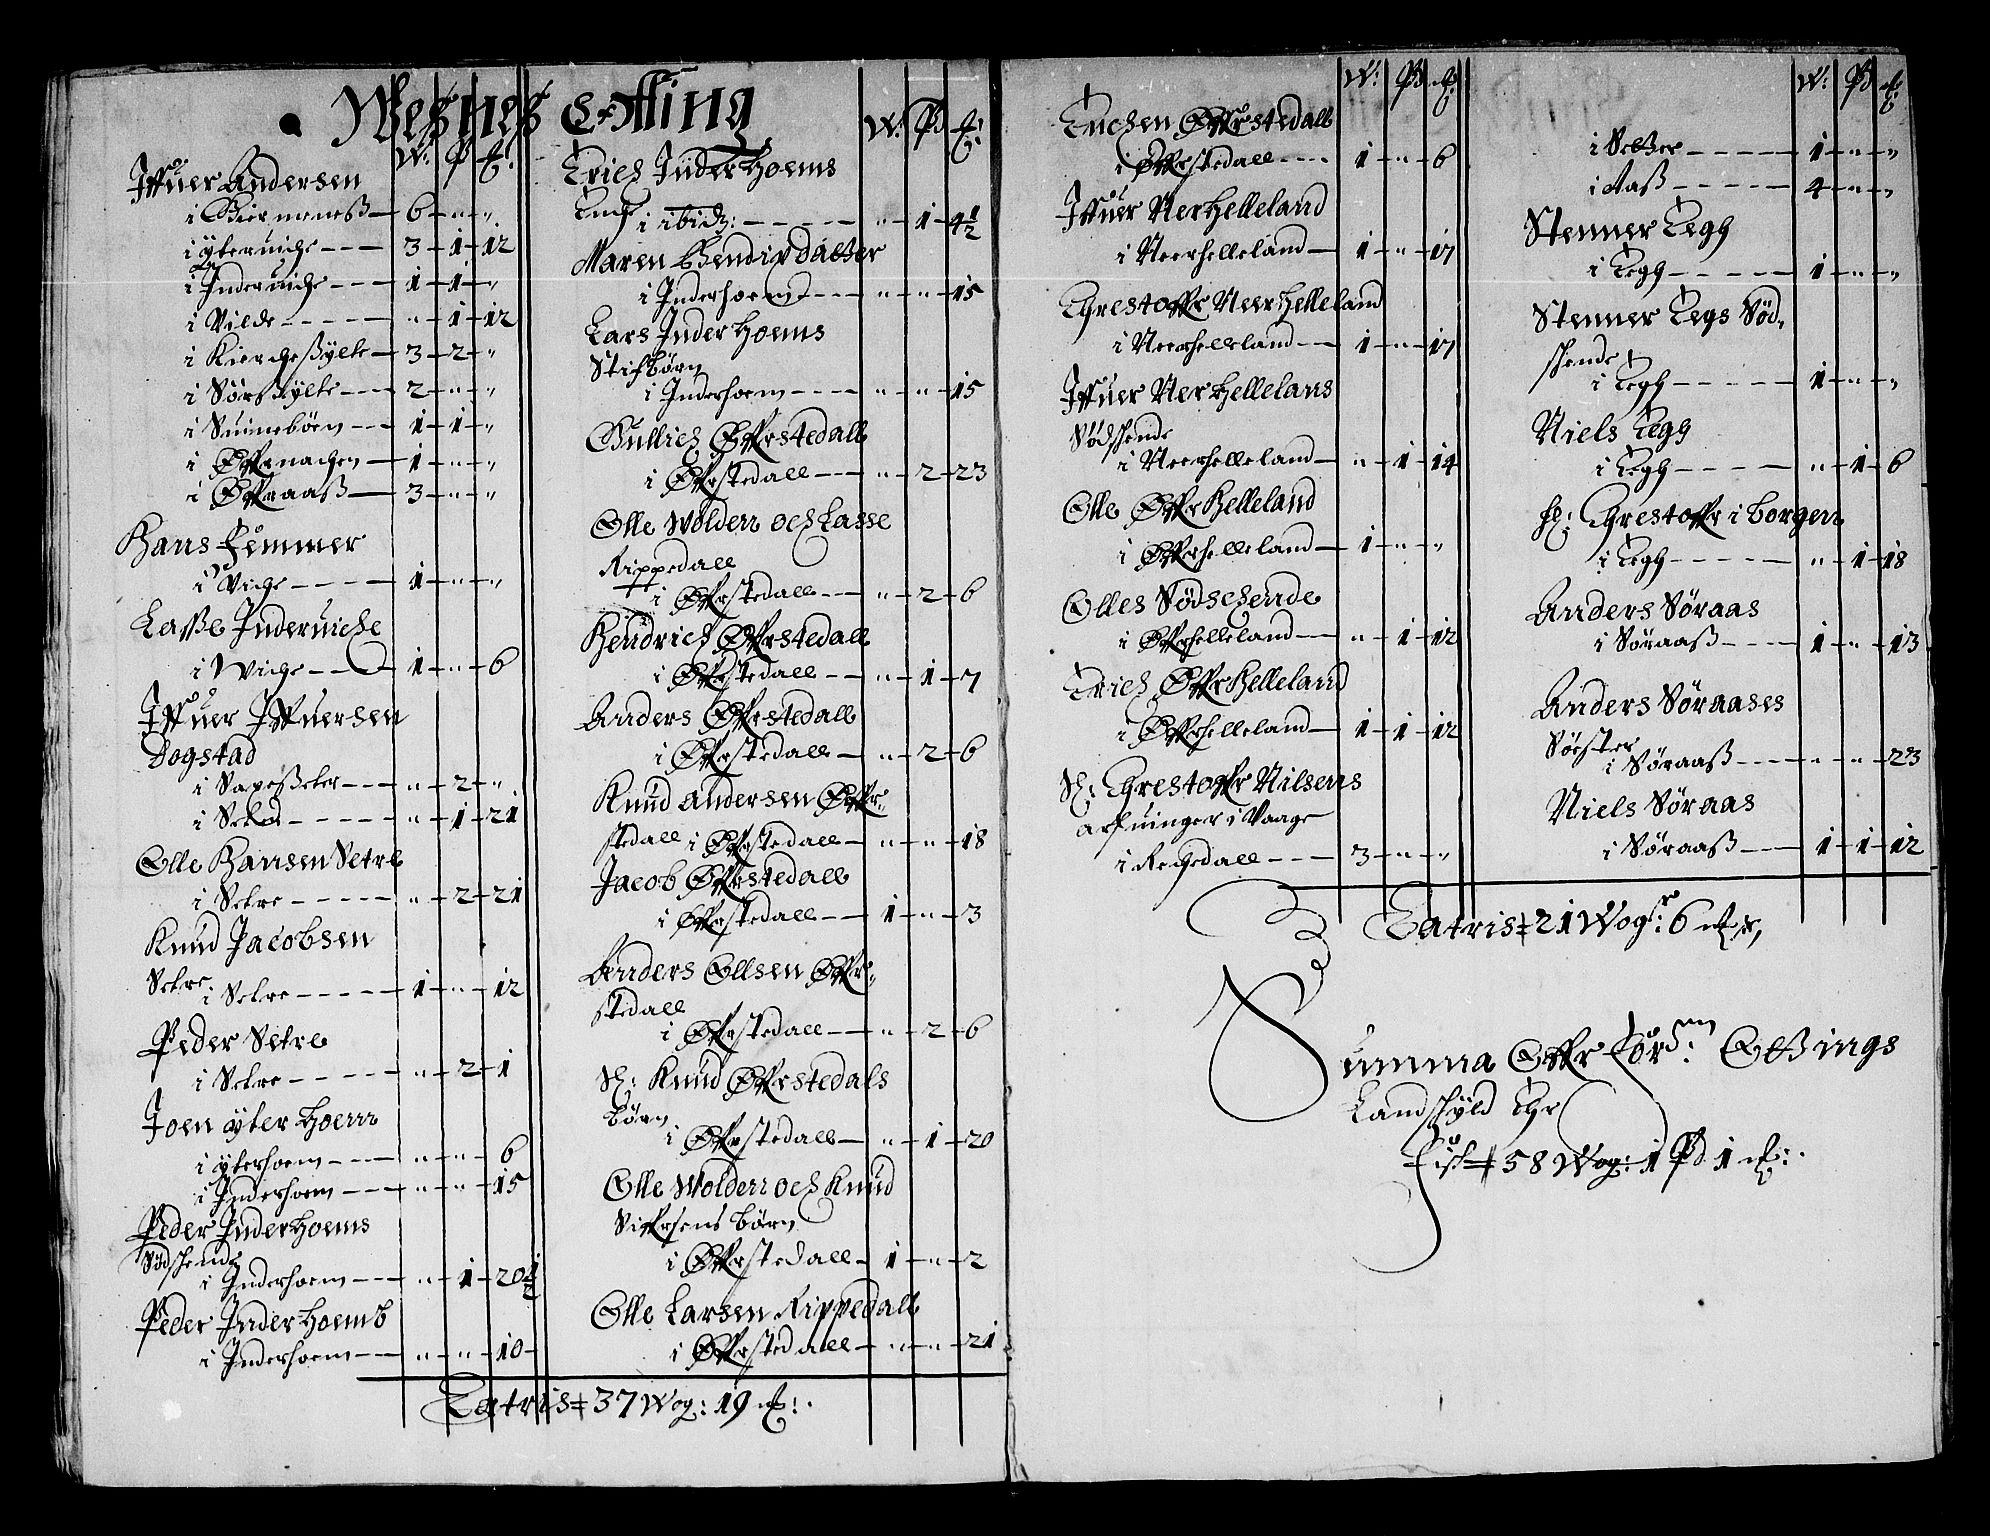 Wesnes Otting
W: Pd m̃:
Iffuer Andersen
i Biermeneß — 6 — „ — „
i ytteruiche — — — 3 — 1 — 12
i Inderuiche — — — 1 — 1 — „
i Vilde — — — — „ — 1 — 12
i Kircheßylte — 3 — 2 — „
i Sørßylte — — 2 — „ — „
i Suinebørn — — 1 — 1 — „
i Offrnachen — 1 — „ — „
i Offraaß — 3 — „ — „
Hans Femmer
i Viche — — — — 1 — „ — „
Lasse Inderuiche
i Wiche — — — 1 — „ — 6
Iffuer Iffuersen
Dogstad
i Saxeßeter — — „ — 2 — „
i Setre — — — — „ — 1 — 21
Olle Hansen Setre
i Setre — — — — „ — 2 — 21
Knud Jacobsen
Setre
i Setre — — — — 1 — „ — 12
Peder Setre
i Setre — — — — „ — 2 — 1
Joen ytter hoem
i ytterhoem — — — „ — „ — 6
i Inderhoem — — — „ — „ — 15
Peder Inderhoems
Sødschende
i Inderhoem — — — „ — 1 — 20½
Peder Inderhoems
i Inderhoem — — „ — „ — 10
W: Pd m̃:
Erich Inderhoems
Enche
i ibid: — — — — — „ — 1 — 4½
Maren Bendixdatter
i Inderhoem — — — „ — „ — 15
Lars Inderhoems
Stifbørn
i Inderhoem — — — „ — „ — 15
Gullich Offrstedall
i Offrstedall — — — „ — 2 — 23
Olle Wolden och Lasse
Rippedall
i Offrstedall — — „ — 2 — 6
Hendrich Offrstedall
i Offrstedall — — „ — 1 — 7
Anders Offrstedall
i Offrstedall — „ — 2 — 6
Knud Andersen Offr:
stedall i Offrstedall — „ — „ — 18
Jacob Offrstedall
i Offrstedall — — 1 — „ — 3
Anders Ollsen Offr:
stedall
i Offrstedall — — „ — 2 — 6
Sl: Knud Offrstedals
børn
i Offrstedall — „ — 1 — 20
Olle Wolden och Knud
Siffrsens børn
i Offrstedall — 1 — „ — 2
Olle Larsen Rippedall
i Offrstedall — „ — „ — 21
Latris 37 Wog: 19 m̃:
W: Pd m̃:
Enchen Offrstedall
i Offrstedall — — — 1 — „ — 6
Iffuer Nerhelleland
i Neerhelleland — 1 — „ — 17
Chrestoffr Neerhelleland
i Neerhelleland — — 1 — „ — 17
Iffuer Nerhellelans
Sødschende
i Neerhelleland — „ — 1 — 14
Olle Offrhelleland
i Offrhelleland — 1 — „ — „
Olles Sødschende
i Offrhelleland — — „ — 1 — 12
Erich Offrhelleland
i Offrhelleland — 1 — 1 — 12
Sl: Chrestoffr Nilsens
arfuinger i Vaage
i Regedall — — — 3 — „ — „
W: Pd m̃:
i Setter — — — — 1 — „ — „
i Aaß — — — — — 4 — „ — „
Stenner Tegh
i Tegh — — — — — 1 — „ — „
Stenner Tegs Sød,
schende
i Tegh — — — — — 1 — „ — „
Niels Tegh
i Tegh — — — — — „ — 1 — 6
Sl: Chrestoffr i borgen
i Tegh — — — — — „ — 1 — 18
Anders Søraas
i Søraaß — — — — 1 — „ — 13
Anders Søraases
Søester
i Søraaß — — — — „ — „ — 23
Niels Søraas
i Søraaß — — 1 — 1 — 12
Latris 21 Wogr: 6 m̃r,
Summa Offr förnm: Ottings
Landschyld Chr
Fisk 58 Wog: 1 Pd 1 m̃: